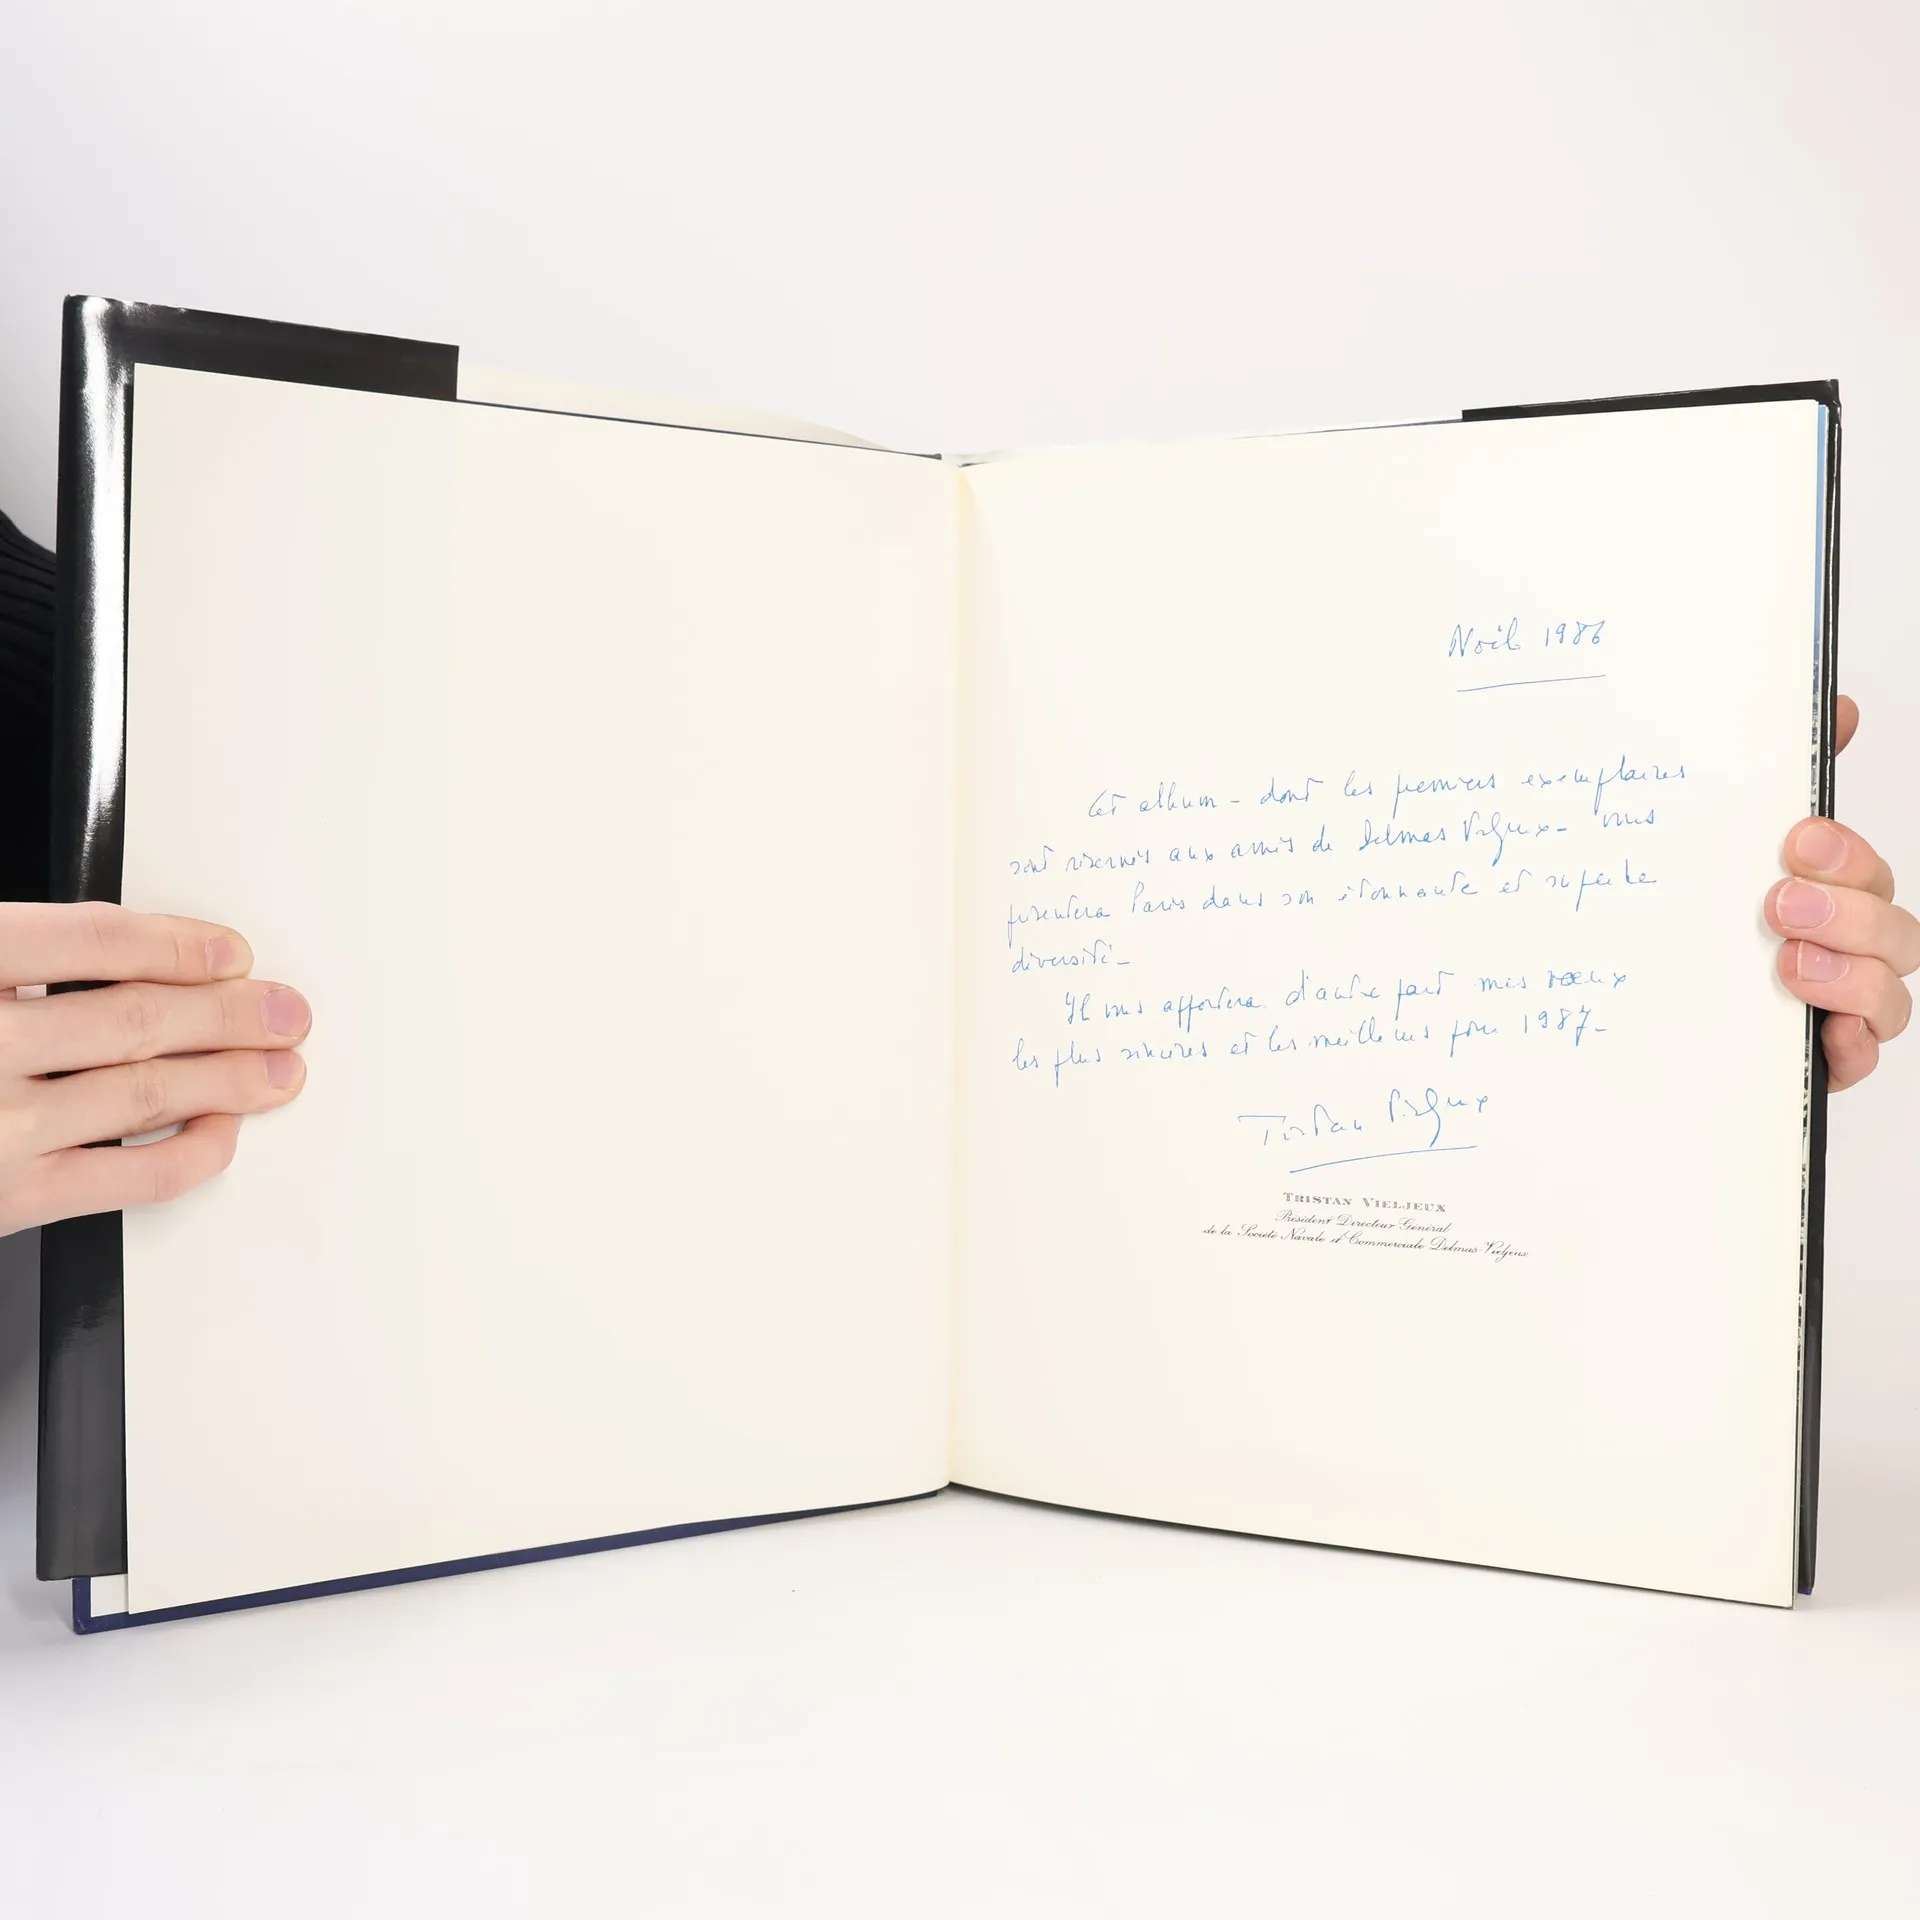 Noël 1986
Cet album - dont les premiers exemplaires
sont réservés aux amis de Delmas Vieljeux - vous
présentera Paris dans son étonnante et superbe
diversité -
Il vous apportera d'autre part mes vœux
les plus sincères et les meilleurs pour 1987 -
Tristan Vieljeux
TRISTAN VIELJEUX
Président Directeur Général
de la Société Navale et Commerciale Delmas-Vieljeux